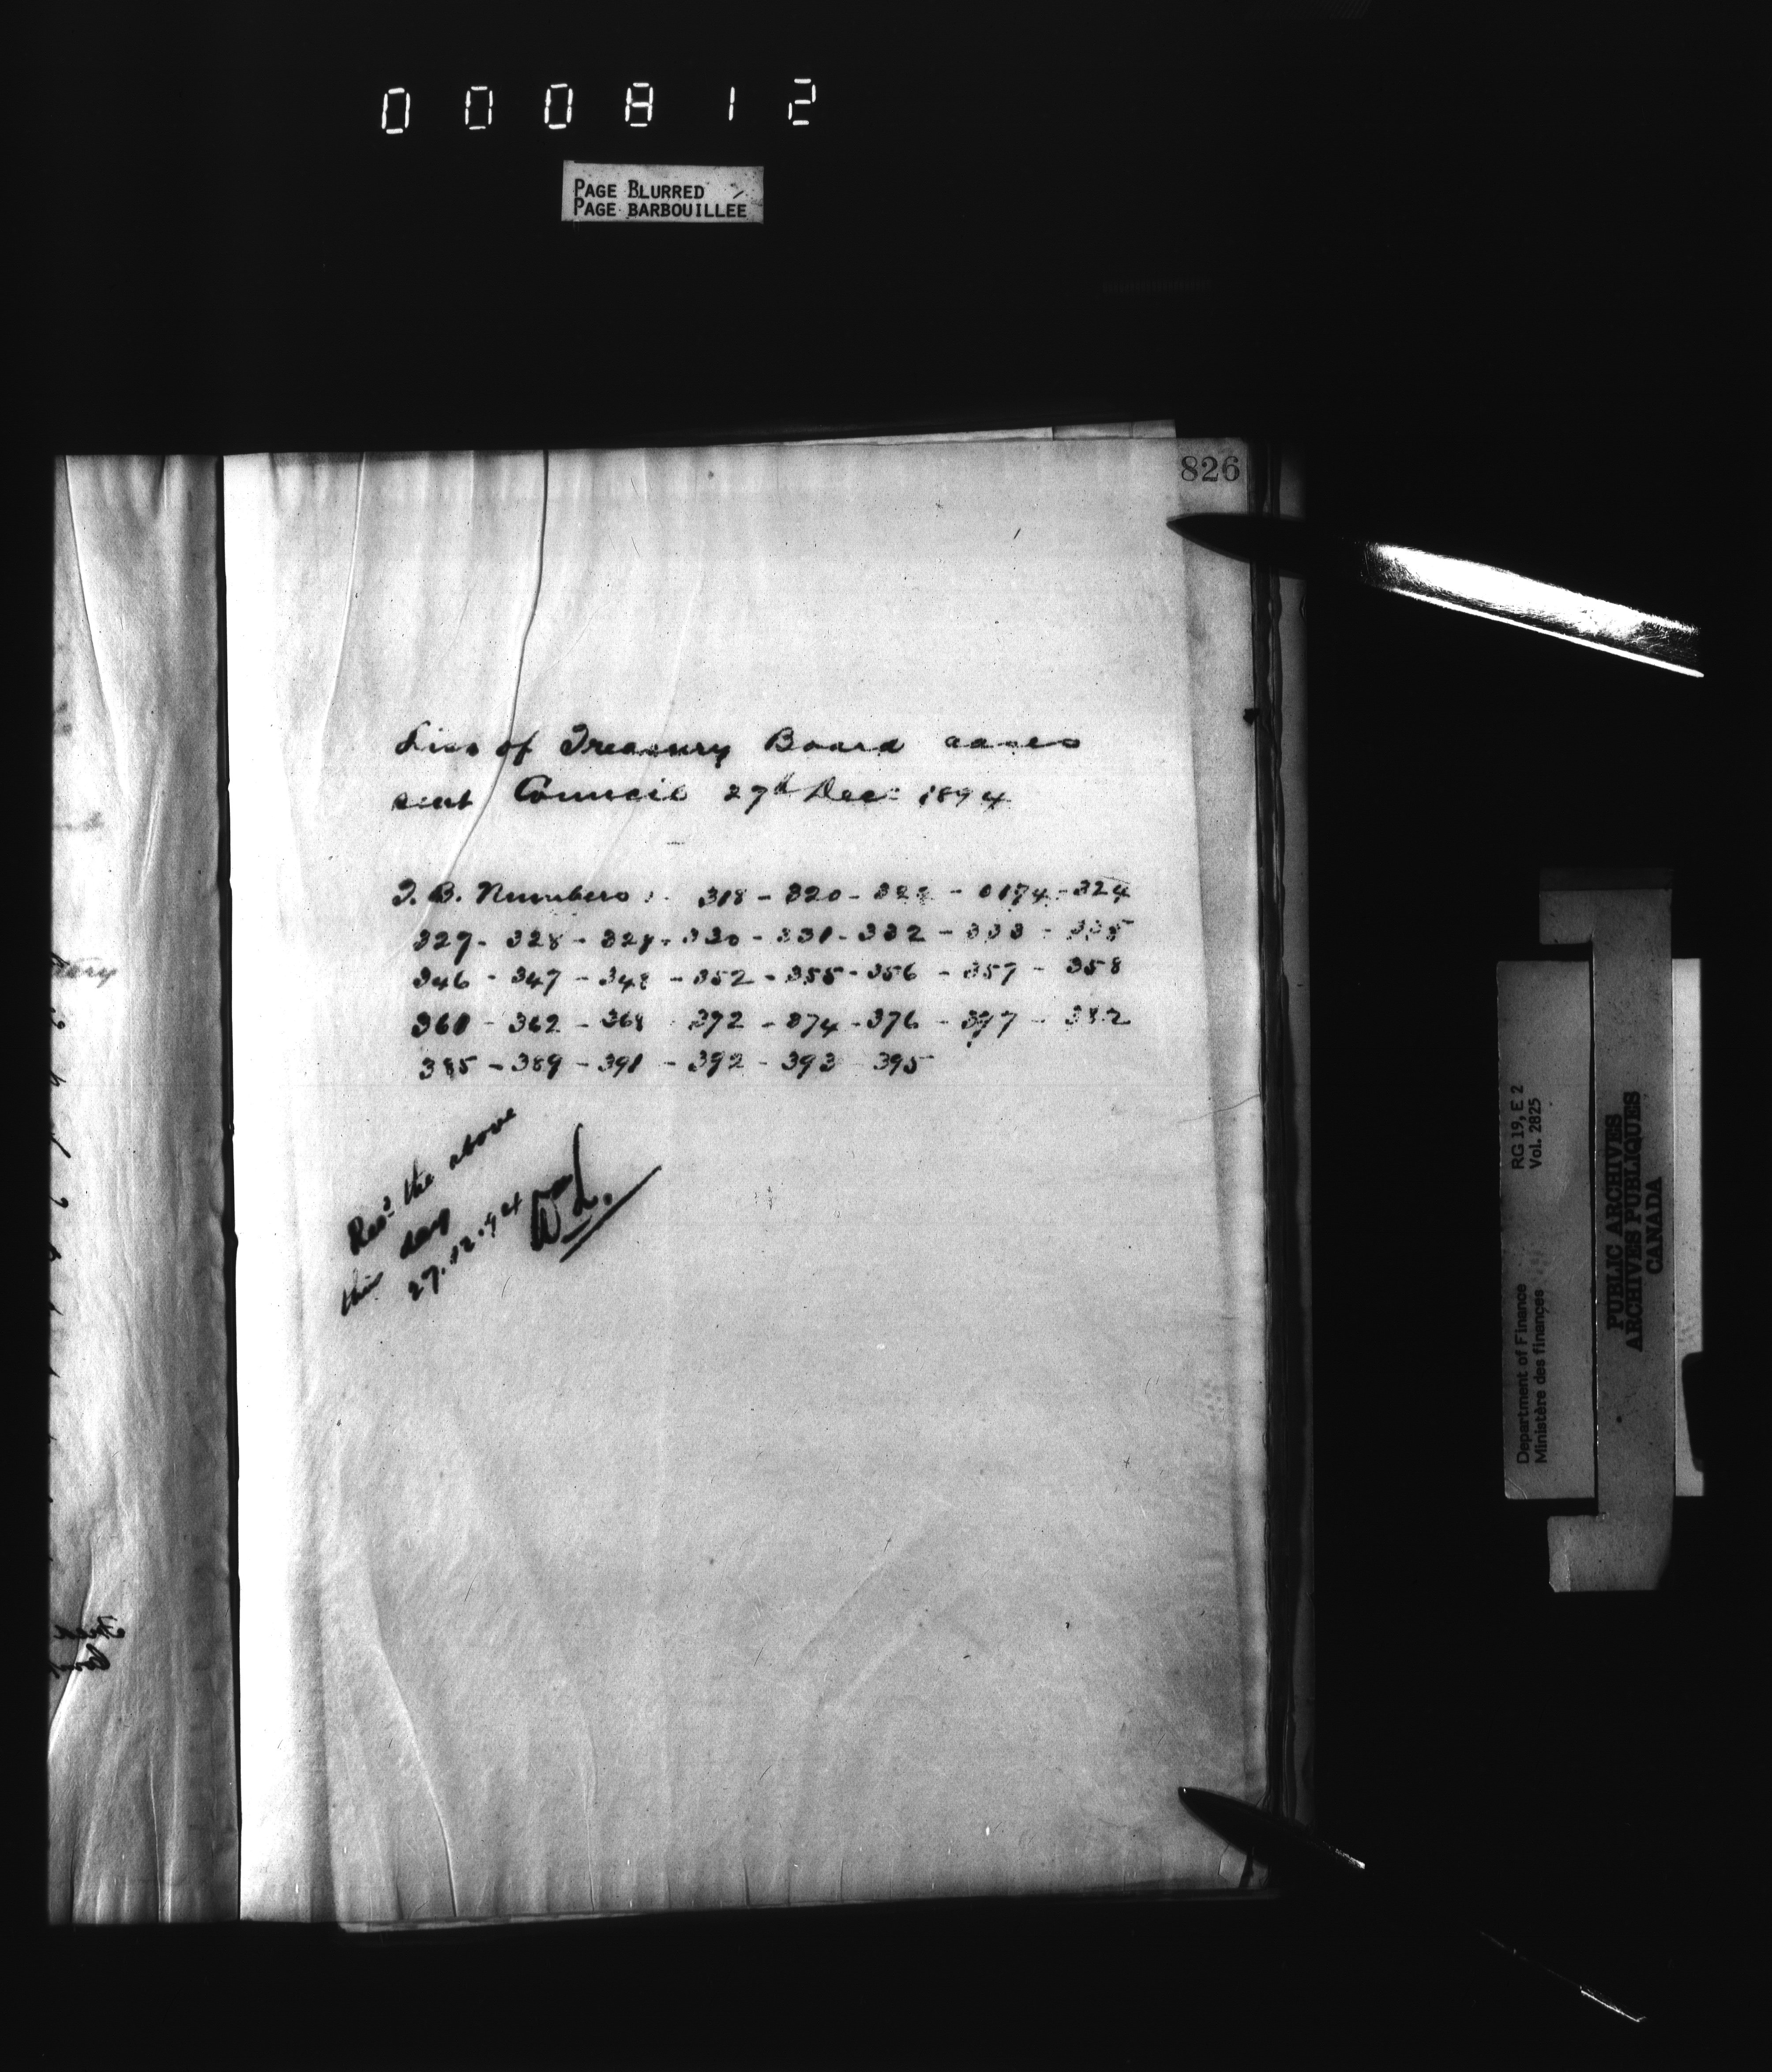 000812
PAGE BLURRED
PAGE BARBOUILLÉE
826
List of Treasury Board cases
sent Council 27th Dec: 1894
T. B. Numbers: 318 - 320 - 322 - 0174 - 324
327 - 328 - 329 - 330 - 331 - 332 - 333 - 335
346 - 347 - 348 - 352 - 355 - 356 - 357 - 358
360 - 362 - 368 - 372 - 374 - 376 - 377 - 382
385 - 389 - 391 - 392 - 393 - 395
Recd the above
this day
27.12.94
RG 19, E 2
Vol. 2825
Department of Finance
Ministère des finances
PUBLIC ARCHIVES
ARCHIVES PUBLIQUES
CANADA